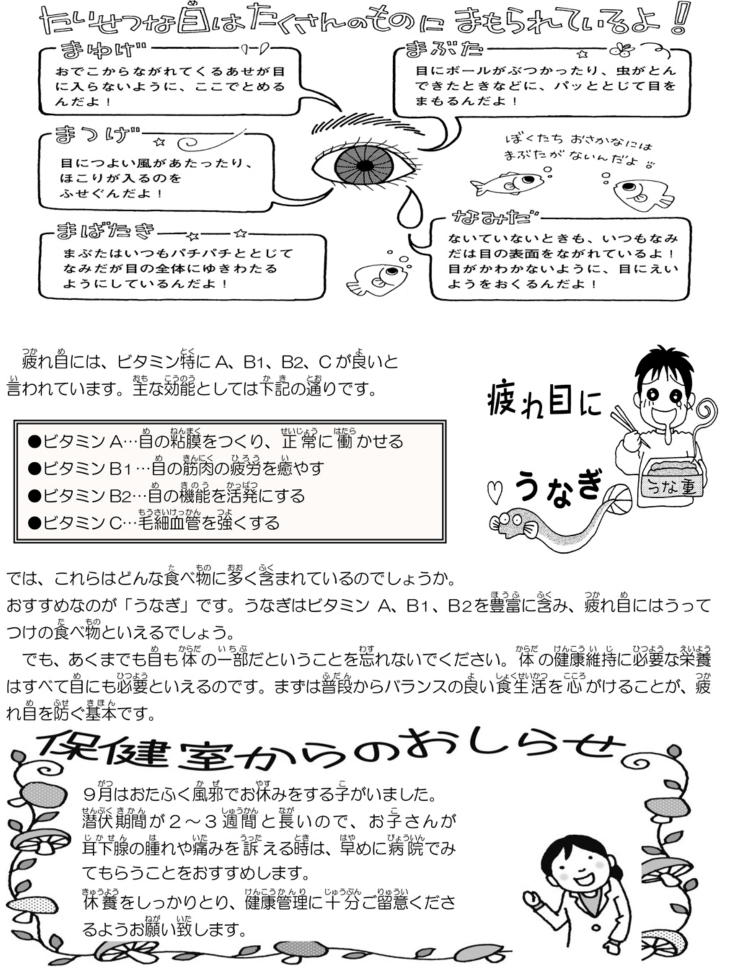 たいせつな目はたくさんのものに まもられているよ!
まゆげ
おでこからながれてくるあせが目
に入らないように、ここでとめる
んだよ!
まぶた
目にボールがぶつかったり、虫がとん
できたときなどに、パッととじて目を
まもるんだよ!
まつげ
目につよい風があたったり、
ほこりが入るのを
ふせぐんだよ!
ぼくたち おさかなには
まぶたが ないんだよ。
まばたき
まぶたはいつもパチパチととじて
なみだが目の全体にゆきわたる
ようにしているんだよ!
なみだ
ないていないときも、いつもなみ
だは目の表面をながれているよ!
目がかわかないように、目にえい
ようをおくるんだよ!
疲れ目には、ビタミン特に A、B1、B2、C が良いと
言われています。主な効能としては下記の通りです。
●ビタミン A…目の粘膜をつくり、正常に働かせる
●ビタミン B1…目の筋肉の疲労を癒やす
●ビタミン B2…目の機能を活発にする
●ビタミン C…毛細血管を強くする
疲れ目に
うなぎ
うな重
では、これらはどんな食べ物に多く含まれているのでしょうか。
おすすめなのが「うなぎ」です。うなぎはビタミン A、B1、B2を豊富に含み、疲れ目にはうって
つけの食べ物といえるでしょう。
でも、あくまでも目も体の一部だということを忘れないでください。体の健康維持に必要な栄養
はすべて目にも必要といえるのです。まずは普段からバランスの良い食生活を心がけることが、疲
れ目を防ぐ基本です。
保健室からのおしらせ
9月はおたふく風邪でお休みをする子がいました。
潜伏期間が2~3週間と長いので、お子さんが
耳下腺の腫れや痛みを訴える時は、早めに病院でみ
てもらうことをおすすめします。
休養をしっかりとり、健康管理に十分ご留意くださ
るようお願い致します。